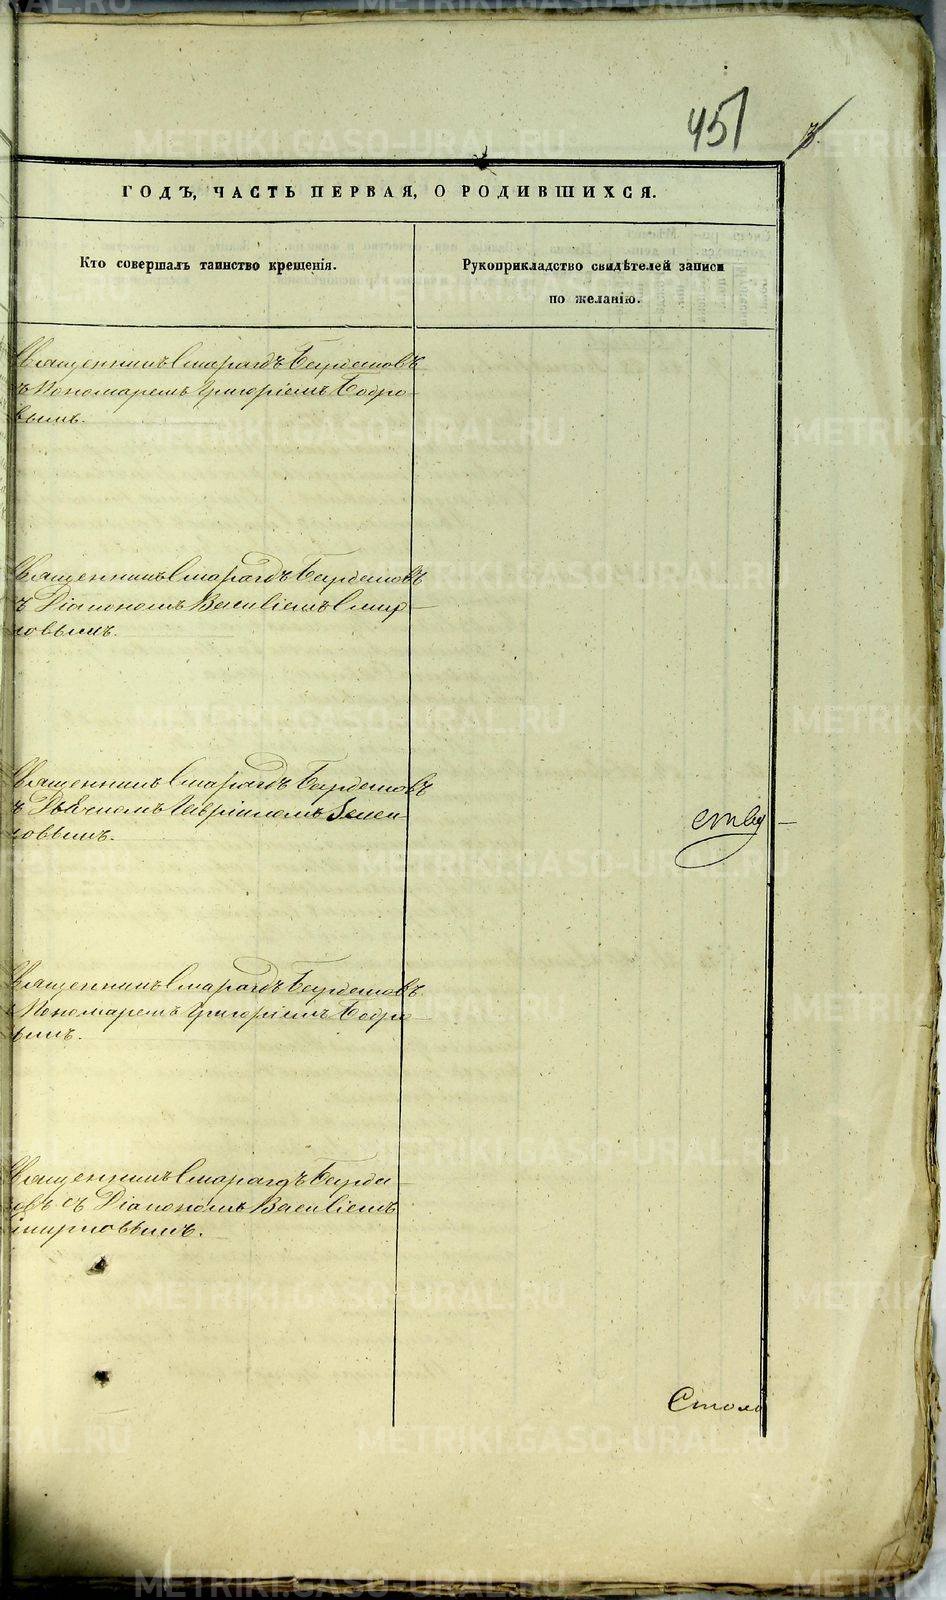 451
3.
ГОДЪ, ЧАСТЬ ПЕРВАЯ, О РОДИВШИХСЯ.
Кто совершалъ таинство крещенія.
Рукоприкладство свидѣтелей записи
по желанію.
Священникъ Смарагдъ
съ Пономаремъ Григоріемъ Бобро-
вымъ.
Священникъ Смарагдъ
съ Діакономъ Василіемъ Смир-
новымъ.
Священникъ Смарагдъ
съ Дьячкомъ Гавріиломъ
новымъ.
ству
Священникъ Смарагдъ
съ Пономаремъ Григоріемъ Бобро-
вымъ.
Священникъ Смарагдъ
съ Діакономъ Василіемъ
Смирновымъ.
METRIKI.GASO-URAL.RU